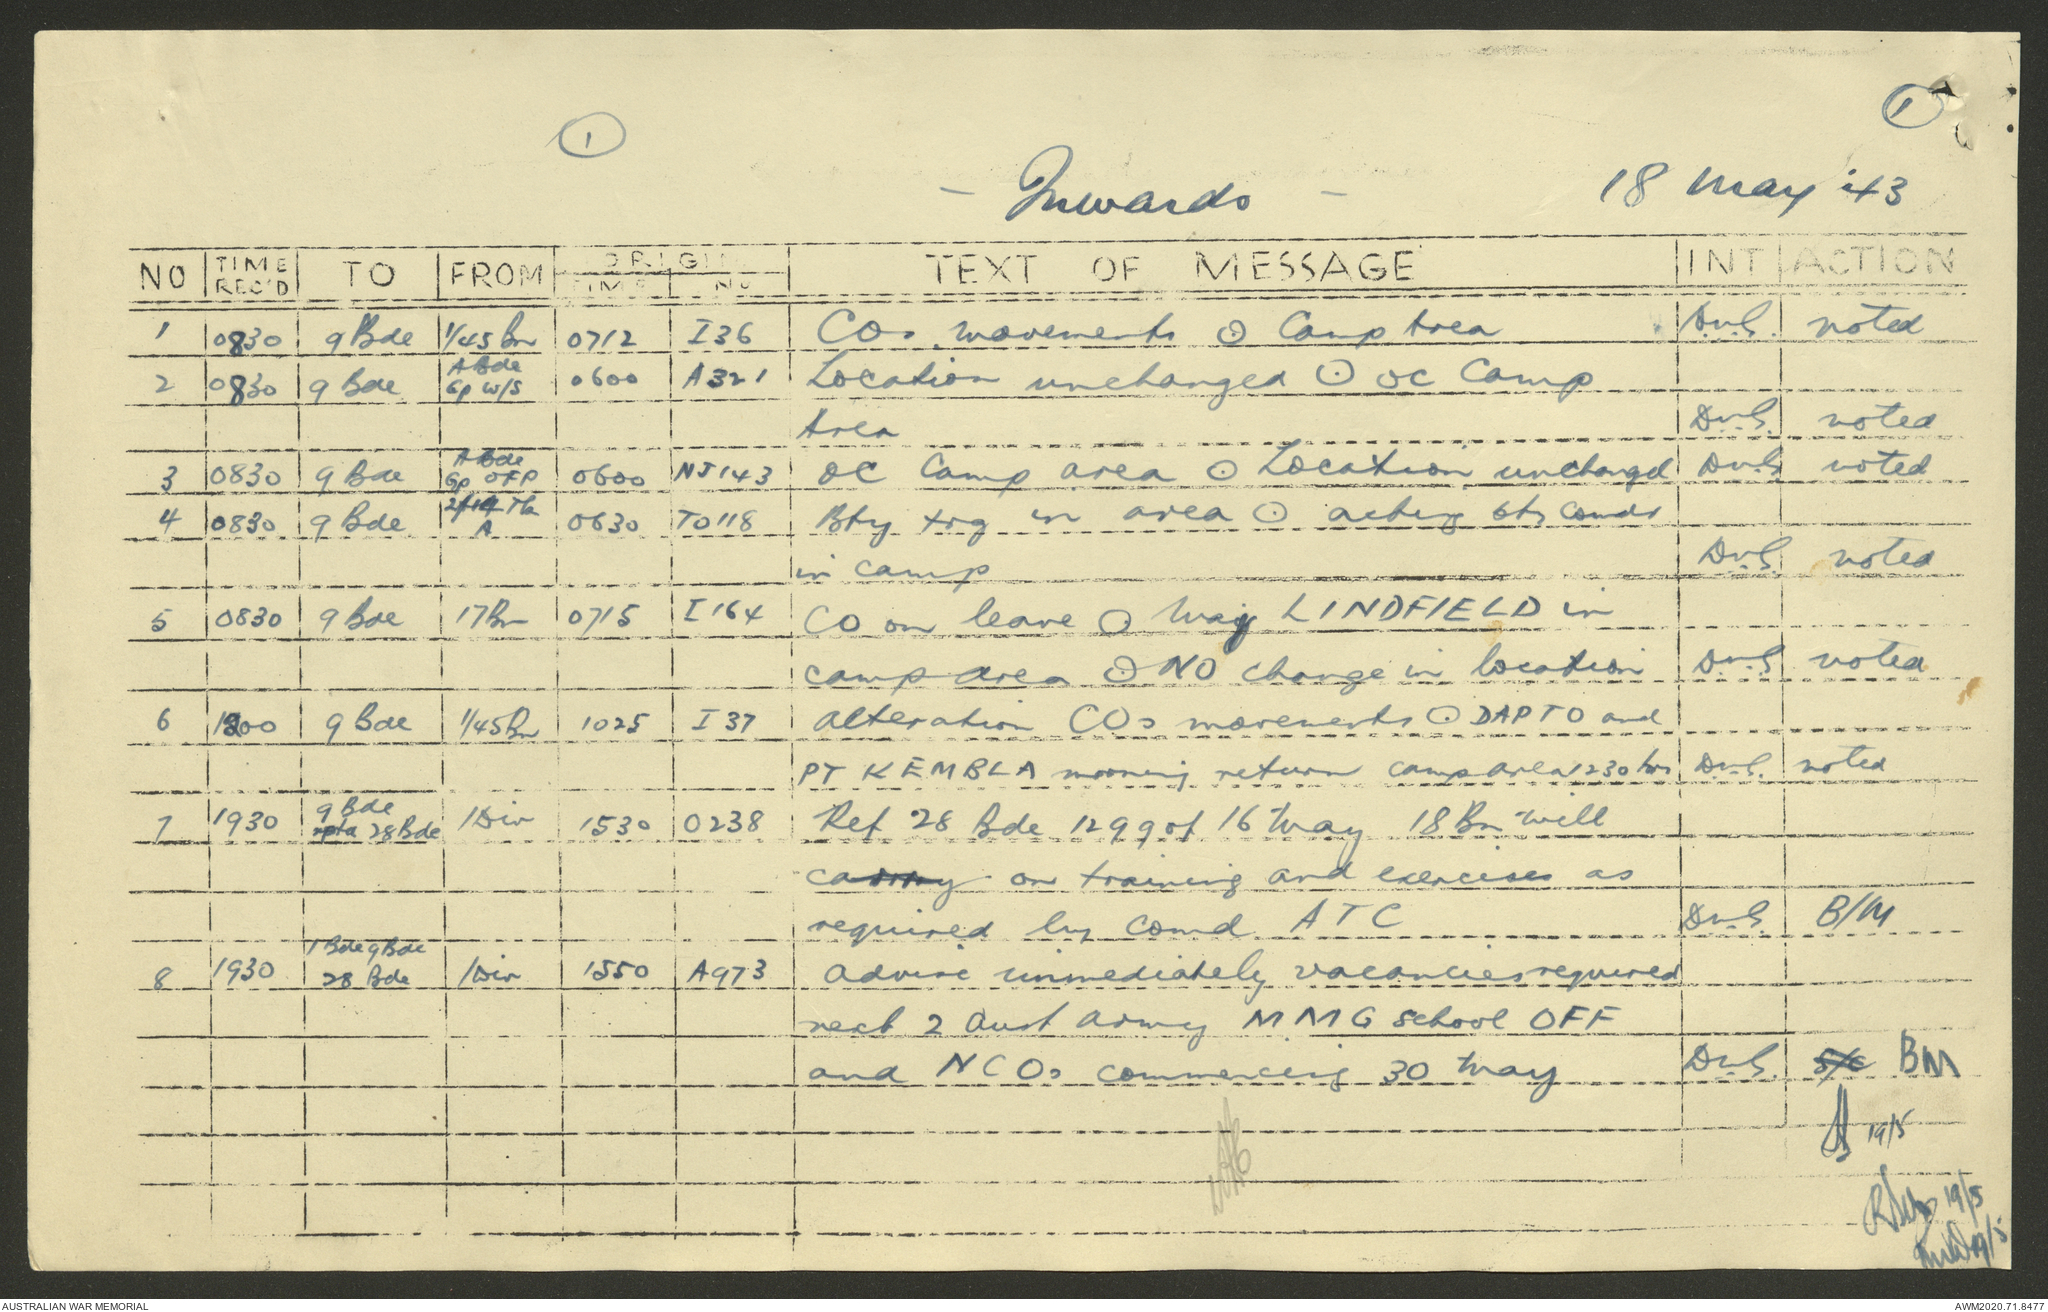 1
1
- Inwards -
18 May '43
NO TIME REC'D TO FROM ORIGIN TIME NO TEXT OF MESSAGE INT ACTION
1 0830 9 Bde 1/45 Bn 0712 I36 COs movements ⊙ Camp Area DmG. noted
2 0830 9 Bde A Bde Gp W/S 0600 A321 Location unchanged ⊙ OC Camp
Area DmG. noted
3 0830 9 Bde A Bde Gp OFP 0600 NJ143 OC Camp area ⊙ Location unchangd DmG noted
4 0830 9 Bde A 0630 TO118 Bty trg in area ⊙ acting bty comdr
in camp DmG. noted
5 0830 9 Bde 17 Bn 0715 I164 CO on leave ⊙ Maj LINDFIELD in
camp area ⊙ NO change in location DmG noted
6 1200 9 Bde 1/45 Bn 1025 I37 alteration COs movements ⊙ DAPTO and
PT KEMBLA morning return camp area 1230 hrs DmG. noted
7 1930 9 Bde rptd 28 Bde 1 Div 1530 O238 Ref 28 Bde 1299 of 16 May 18 Bn will
carry on training and exercises as
required by Comd ATC DmG. B/M
8 1930 1 Bde 9 Bde 28 Bde 1 Div 1550 A973 advise immediately vacancies required
next 2 Aust Army MMG school OFF
and NCOs commencing 30 May DmG. S/C BM
19/5
19/5
19/5
AUSTRALIAN WAR MEMORIAL
AWM2020.71.8477